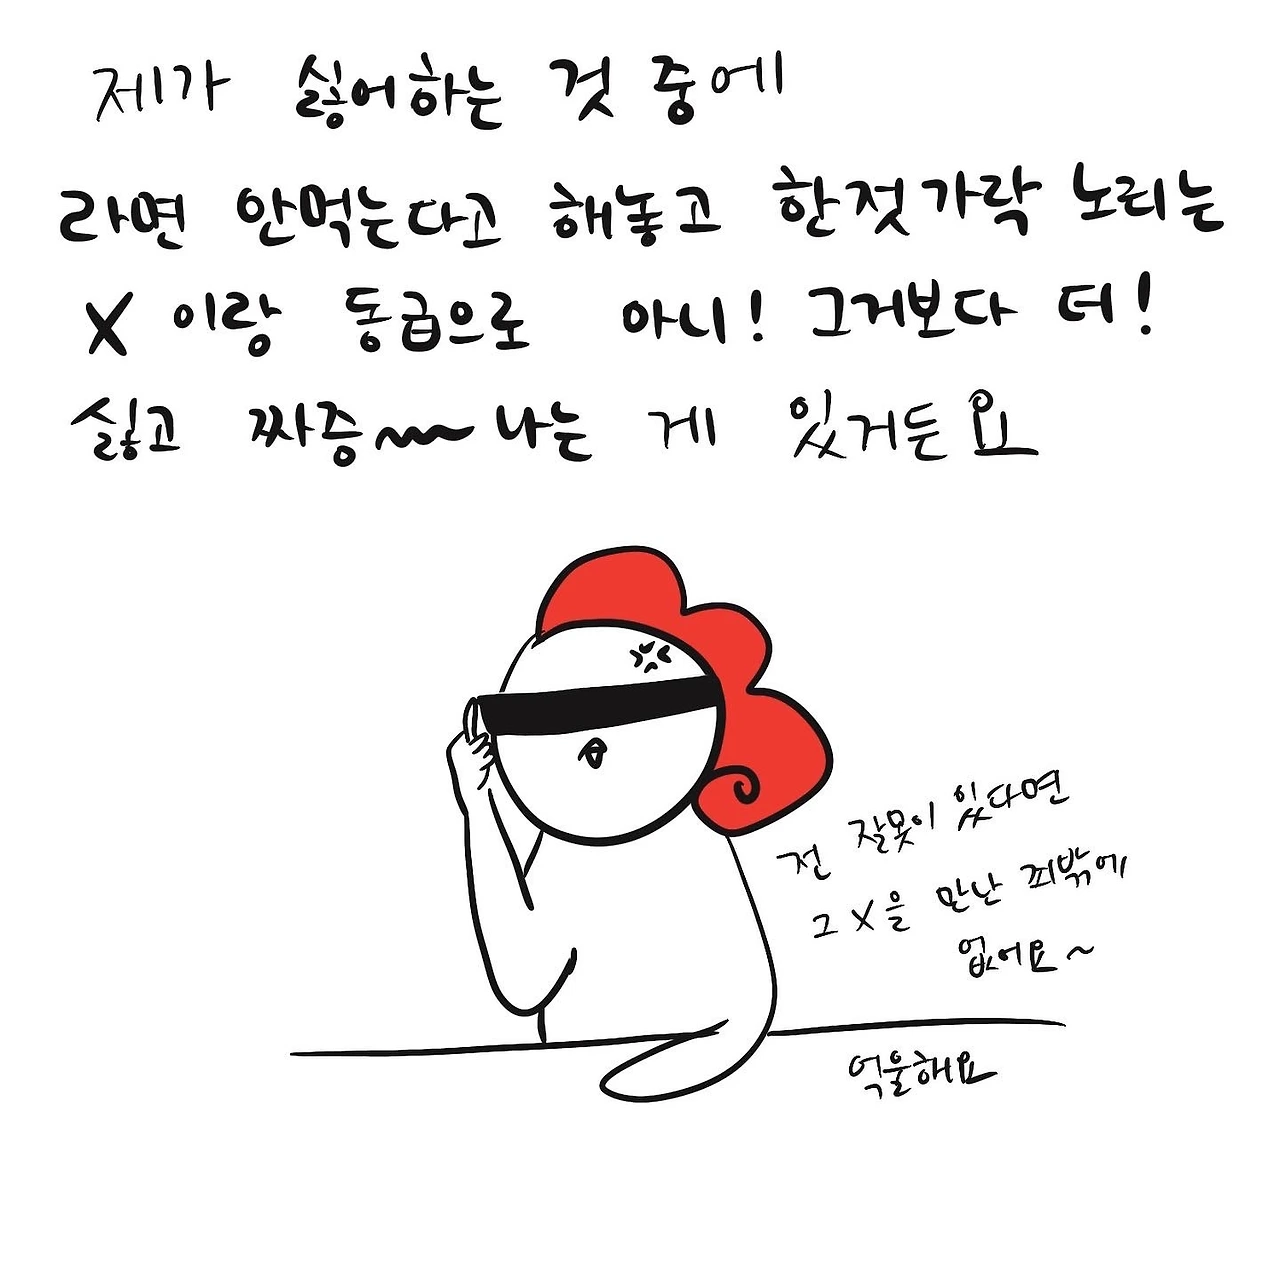 제가 싫어하는 것 중에
라면 안먹는다고 해놓고 한젓가락 노리는
X 이랑 동급으로 아니! 그거보다 더!
싫고 짜증~~나는 게 있거든요
전 잘못이 있다면
그 X을 만난 죄밖에
없어요~
억울해요